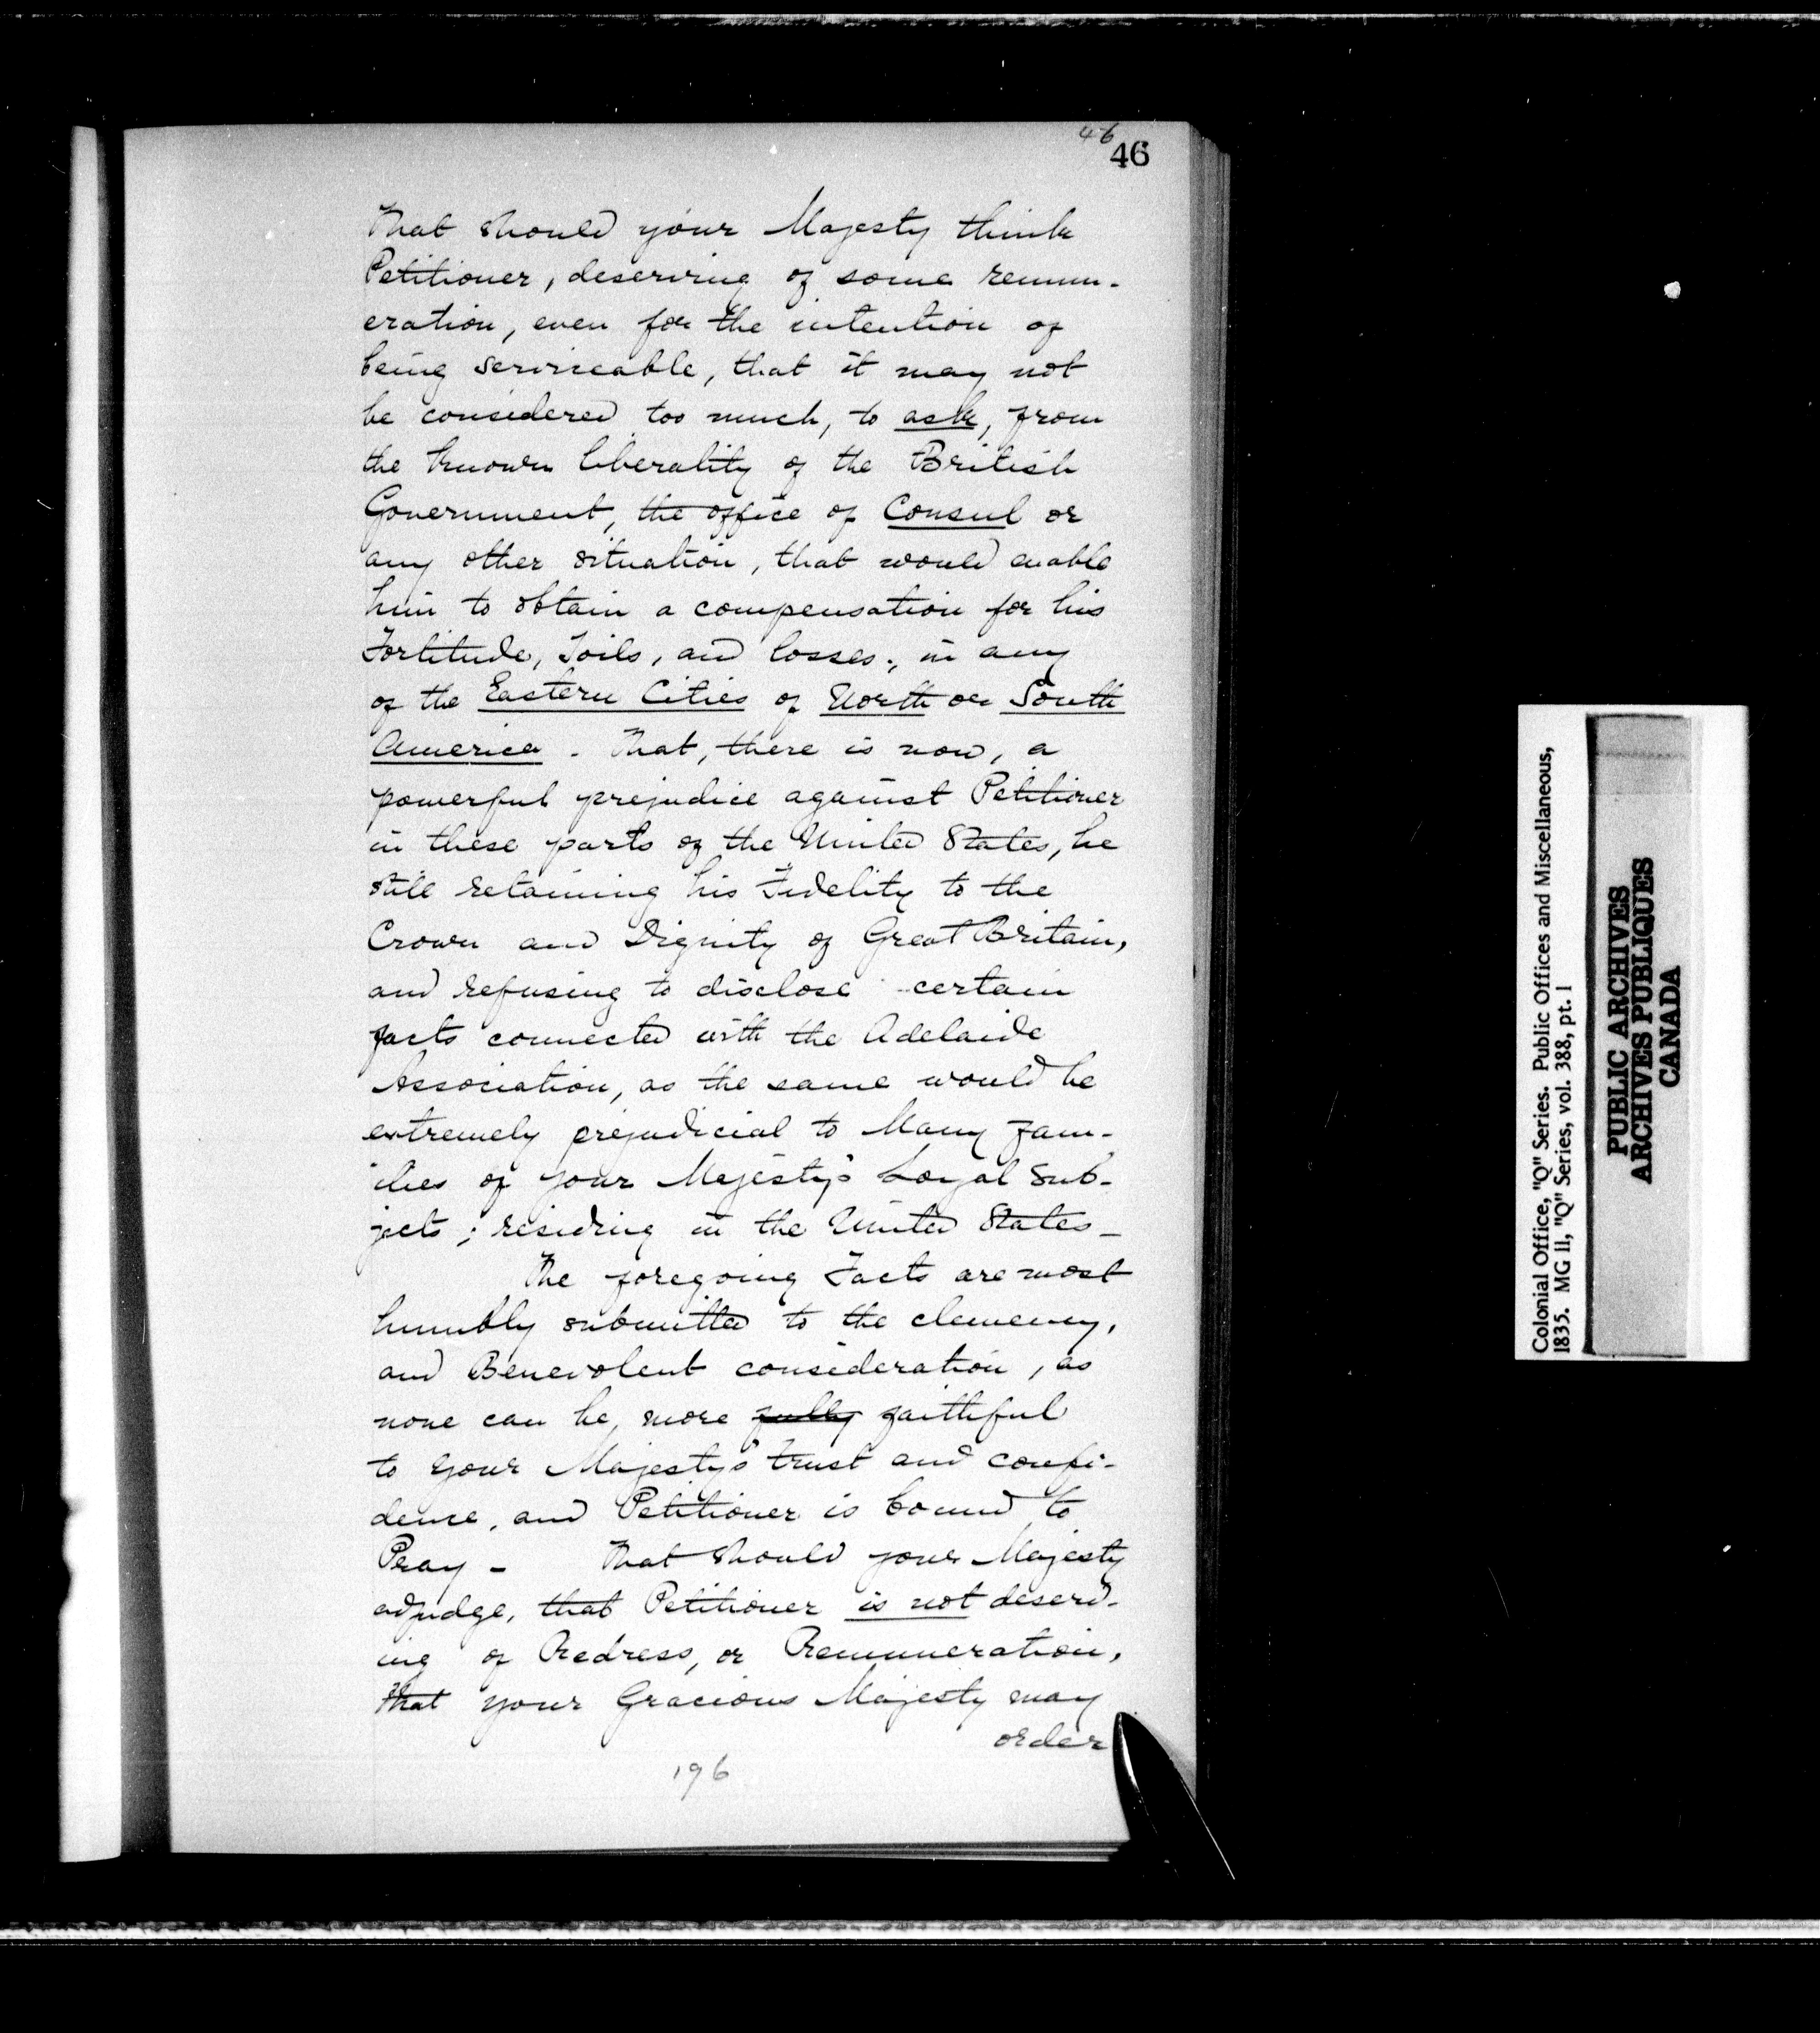 46
46
That should your Majesty think
Petitioner, deserving of some remun-
eration, even for the intention of
being serviceable, that it may not
be considered too much, to ask, from
the known liberality of the British
Government, the office of Consul or
any other situation, that would enable
him to obtain a compensation for his
Fortitude, Toils, and losses; in any
of the Eastern Cities of North or South
America. That, there is now, a
powerful prejudice against Petitioner
in these parts of the United States, he
still retaining his Fidelity to the
Crown and Dignity of Great Britain,
and refusing to disclose certain
facts connected with the Adelaide
Association, as the same would be
extremely prejudicial to Many Fam-
ilies of your Majesty's Loyal Sub-
jects; residing in the United States_
The foregoing Facts are most
humbly submitted to the clemency,
and Benevolent consideration, as
none can be, more fully faithful
to your Majesty's trust and confi-
dence, and Petitioner is bound to
Pray - That should your Majesty
adjudge, that Petitioner is not deserv-
ing of Redress, or Remuneration,
that your Gracious Majesty may
order
196
Colonial Office, "Q" Series. Public Offices and Miscellaneous,
1835. MG 11, "Q" Series, vol. 388, pt. 1
PUBLIC ARCHIVES
ARCHIVES PUBLIQUES
CANADA